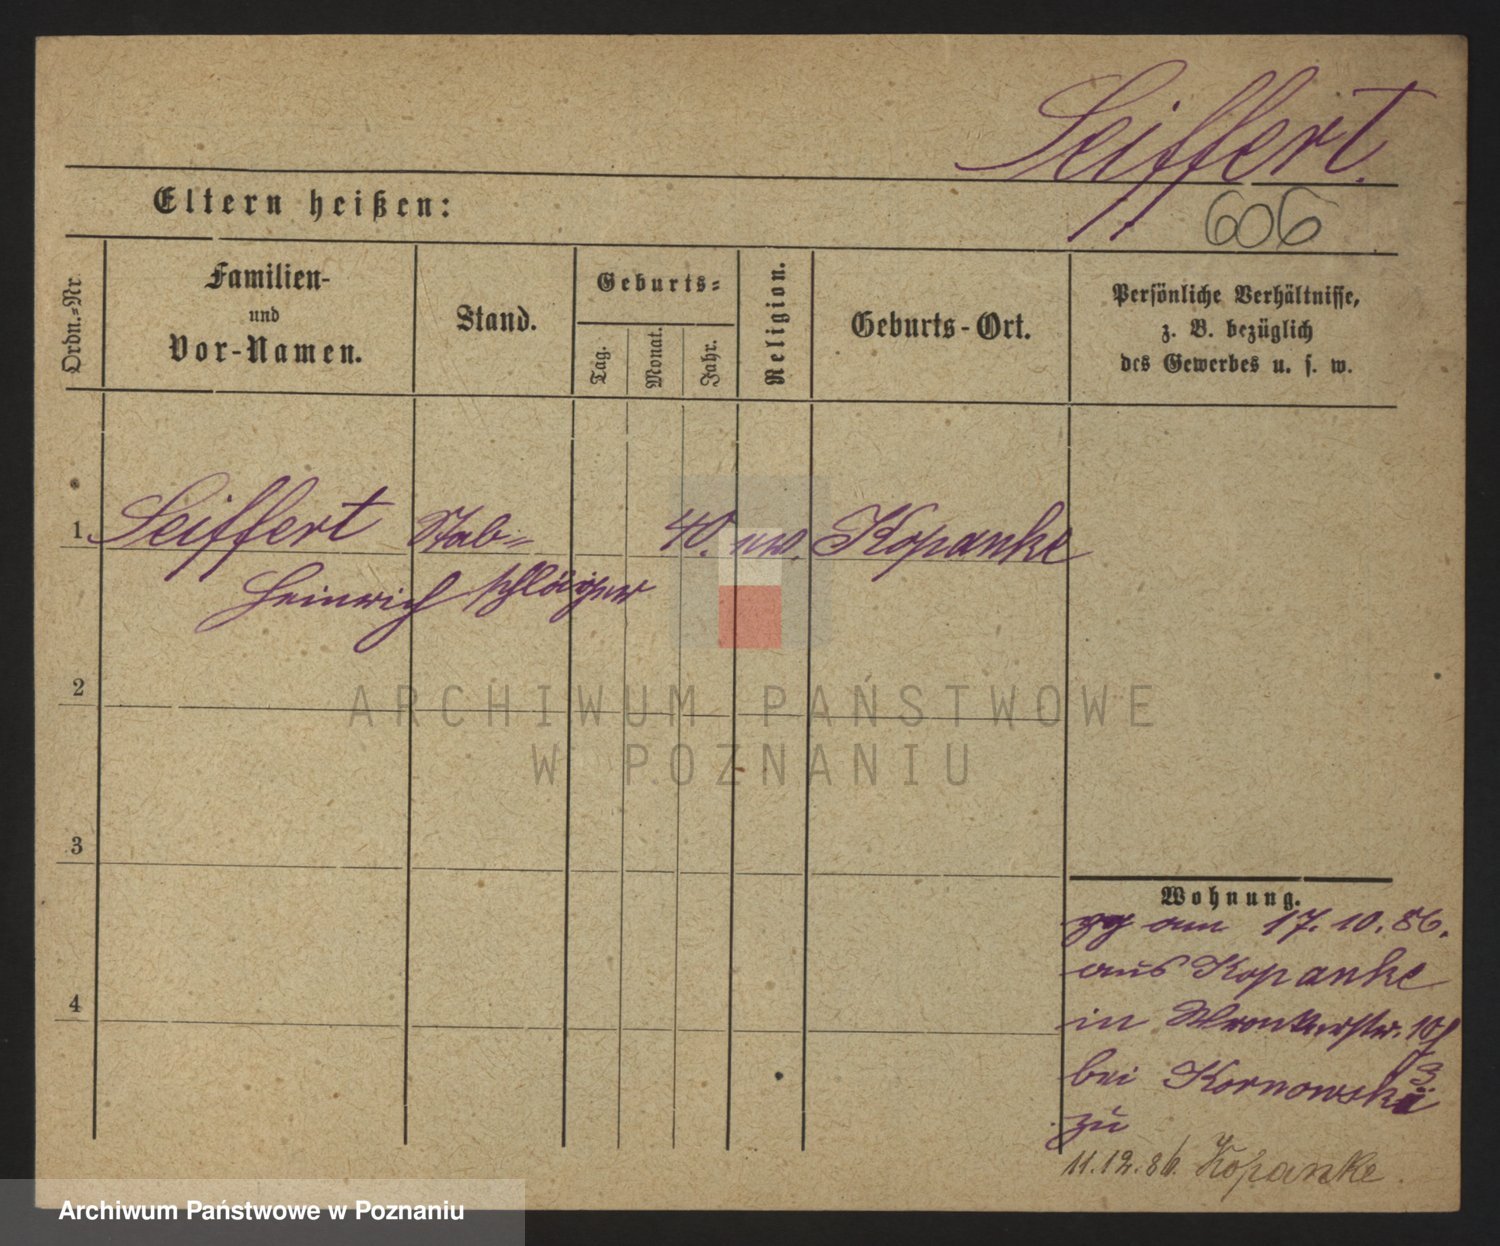 Seiffert.
Eltern heißen:
606
Ordn.-Nr.
Familien-
und
Vor-Namen.
Stand.
Geburts-
Tag.
Monat.
Jahr.
Religion.
Geburts-Ort.
Persönliche Verhältnisse,
z. B. bezüglich
des Gewerbes u. s. w.
1. Seiffert Stab- 40. ev. Kopanke
Heinrich schläger
2
ARCHIWUM PAŃSTWOWE
W POZNANIU
3
Wohnung.
am 17.10.86.
aus Kopanke
4
in Wronkerstr. 10
bei Kornowski
zu
11.12.86. Kopanke.
Archiwum Państwowe w Poznaniu